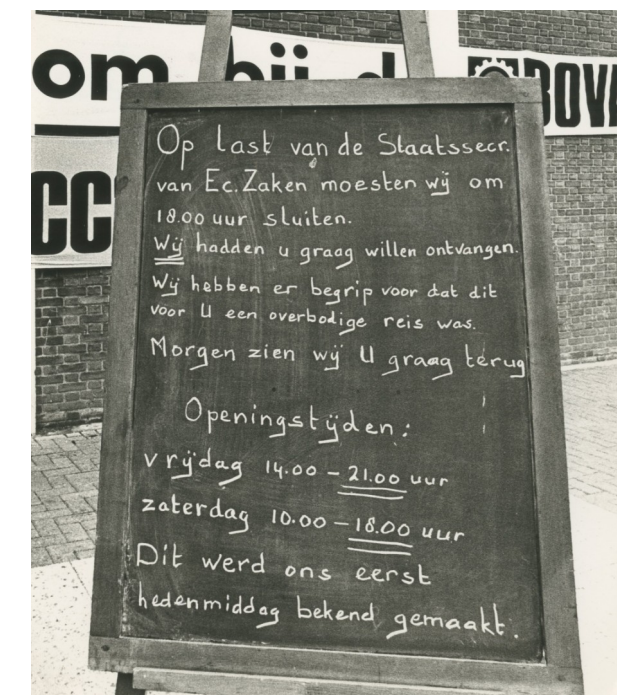 om bij d
BOVA
CC
Op last van de Staatssecr.
van Ec. Zaken moesten wij om
18.00 uur sluiten.
Wij hadden u graag willen ontvangen.
Wij hebben er begrip voor dat dit
voor U een overbodige reis was.
Morgen zien wij U graag terug
Openingstijden:
vrijdag 14.00 - 21.00 uur
zaterdag 10.00 - 18.00 uur
Dit werd ons eerst
hedenmiddag bekend gemaakt.